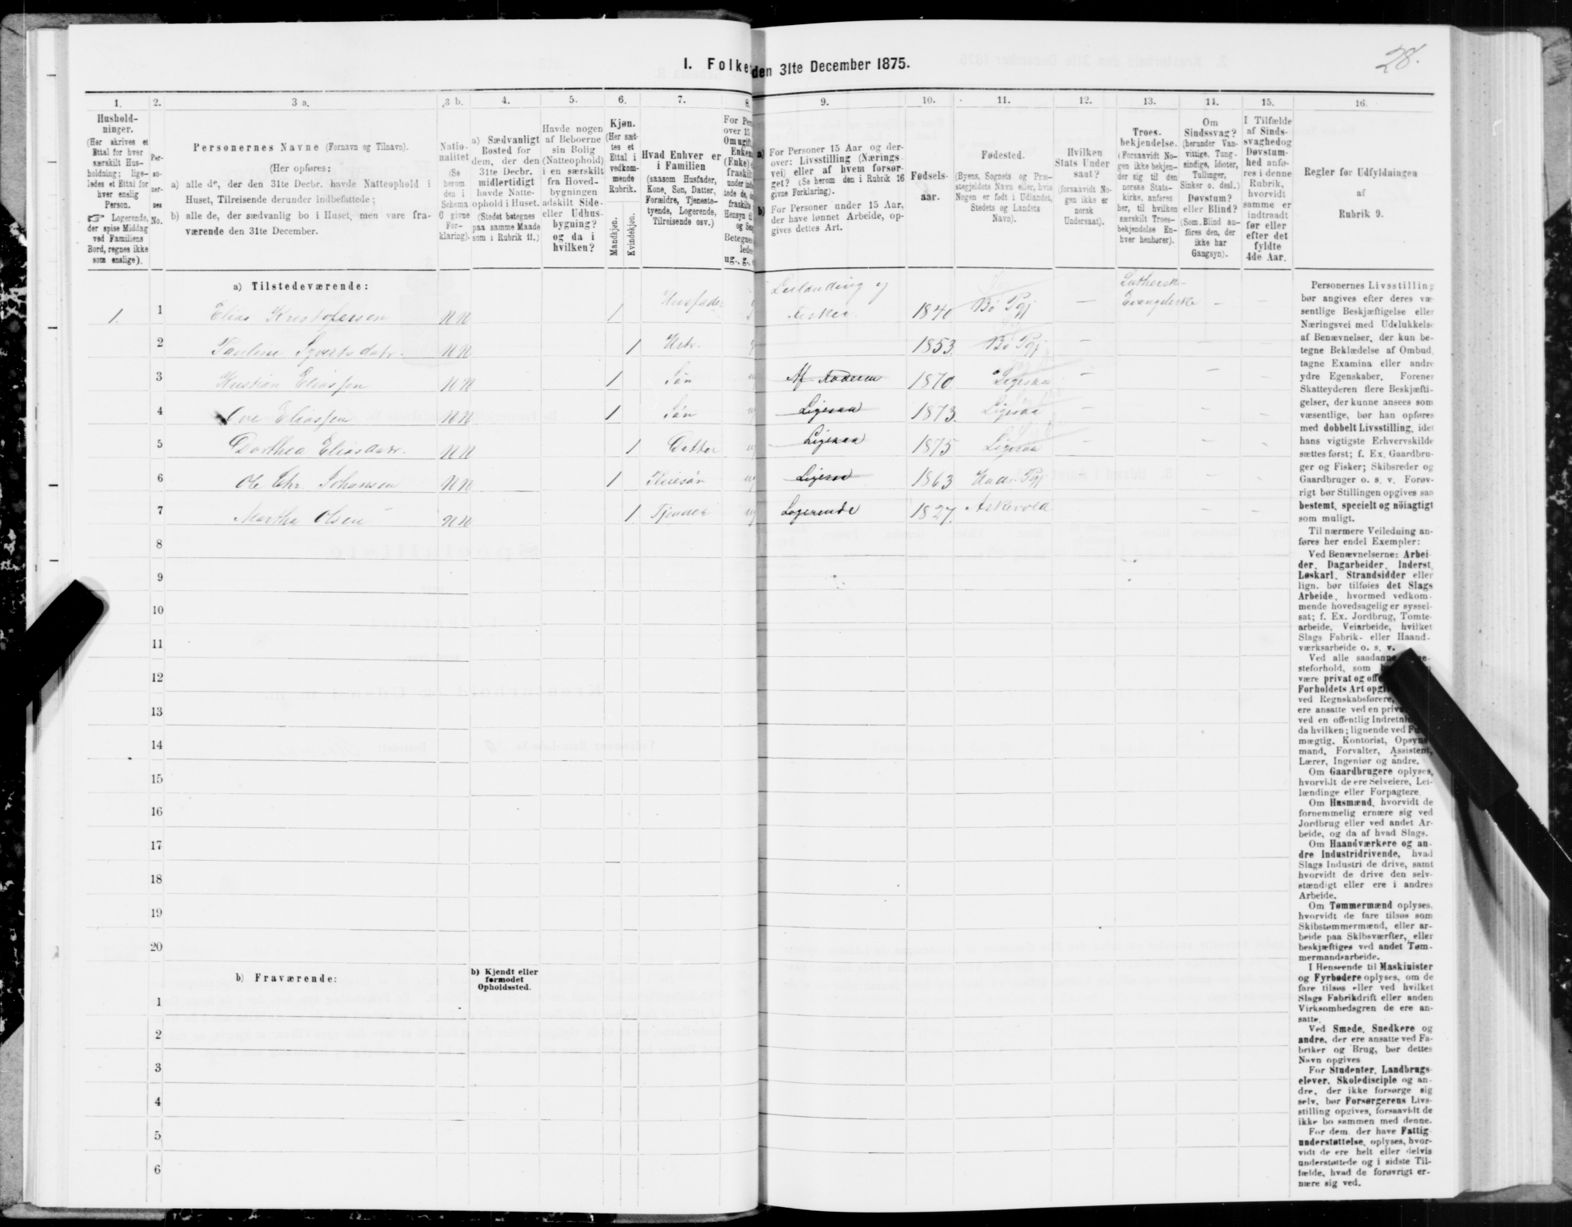 28.
I. Folke
den 31te December 1875.
1. 2. 3 a. 3 b. 4. 5. 6. 7. 8. 9. 10. 11. 12. 13. 14. 15. 16.
Hushold-
ninger.
(Her skrives et
Ettal for hver
særskilt Hus-
holdning; lige-
ledes et Ettal for
hver enslig
Person.
☞ Logerende,
der spise Middag
ved Familiens
Bord, regnes ikke
som enslige).
Per-
so-
ner-
nes
No.
Personernes Navne (Fornavn og Tilnavn).
(Her opføres:
a) alle de, der den 31te Decbr. havde Natteophold i
Huset, Tilreisende derunder indbefattede;
b) alle de, der sædvanlig bo i Huset, men vare fra-
værende den 31te December.
Natio-
nalitet
(Se
herom
den i
Schema
C givne
For-
klaring).
a) Sædvanligt
Bosted for
dem, der den
31te Decbr.
midlertidigt
havde Natte-
ophold i Huset.
(Stedet betegnes
paa samme Maade
som i Rubrik 11.)
Havde nogen
af Beboerne
sin Bolig
(Natteophold)
i en særskilt
fra Hoved-
bygningen
adskilt Side-
eller Udhus-
bygning?
og da i
hvilken?
Kjøn.
(Her sæt-
tes et
Ettal i
vedkom-
mende
Rubrik.
Mandkjøn.
Kvindekjøn.
Hvad Enhver er
i Familien
(saasom Husfader,
Kone, Søn, Datter,
Forældre, Tjeneste-
tyende, Logerende,
Tilreisende osv.)
a) For Personer 15 Aar og der-
over: Livsstilling (Nærings-
vei) eller af hvem forsør-
get? (Se herom den i Rubrik 16
givne Forklaring).
b) For Personer under 15 Aar,
der have lønnet Arbeide, op-
gives dettes Art.
Fødsels-
aar.
Fødested.
(Byens, Sognets og Præ-
stegjeldets Navn eller, hvis
Nogen er født i Udlandet,
Stedets og Landets
Navn).
Hvilken
Stats Under
saat?
(forsaavidt No-
gen ikke er
norsk
Undersaat).
Troes-
bekjendelse.
(Forsaavidt No-
gen ikke bekjen-
der sig til den
norske Stats-
kirke, anføres
her, til hvilken
særskilt Troes-
bekjendelse En-
hver henhører).
Om
Sindssvag?
(herunder Van-
vittige, Tung-
sindige, Idioter,
Tullinger,
Sinker o. desl.)
Døvstum?
eller Blind?
(Som Blind an-
føres den, der
ikke har
Gangsyn).
I Tilfælde
af Sinds-
svaghed og
Døvstum-
hed anfø-
res i denne
Rubrik,
hvorvidt
samme er
indtraadt
før eller
efter det
fyldte
4de Aar.
Regler før Udfyldningen
af
Rubrik 9.
a) Tilstedeværende:
1. 1 Elias Kristofersen NN 1 Husfader Leilænding og Fisker 1840 Bø Pgj — Luthersk-Evangeliske — —
2 Pauline Sjvertsdatr. NN 1 1853. Bø Pgj —
3 Kristian Eliassen NN 1 Søn 1870 Ligesaa — — —
4 Ove Eliassen NN 1 Søn Ligesaa 1873. Ligesaa — — —
5 Dorthea Eliasdatr. NN 1 Datter Ligesaa 1875 Ligesaa — —
6 Ole Chr. Johansen NN 1 Pleiesøn Ligesaa 1863 Hads. Pgj — —
7 Martha Olsen NN 1 Logerende 1827. Askevold — —
8
9
10
11
12
13
14
15
16
17
18
19
20
b) Fraværende:
b) Kjendt eller
formodet
Opholdssted.
1
2
3
4
5
6
Personernes Livsstilling
bør angives efter deres væ-
sentlige Beskjæftigelse eller
Næringsvei med Udelukkelse
af Benævnelser, der kun be-
tegne Beklædelse af Ombud,
tagne Examina eller andre
ydre Egenskaber. Forener
Skatteyderen flere Beskjæfti-
gelser, der kunne ansees som
væsentlige, bør han opføres
med dobbelt Livsstilling, idet
hans vigtigste Erhvervskilde
sættes først; f. Ex. Gaardbru-
ger og Fisker; Skibsreder og
Gaardbruger o. s. v. Forøv-
rigt bør Stillingen opgives saa
bestemt, specielt og nøiagtigt
som muligt.
Til nærmere Veiledning an-
føres her endel Exempler:
Ved Benævnelserne: Arbei-
der, Dagarbeider, Inderst,
Løskarl, Strandsidder eller
lign. bør tilføies det Slags
Arbeide, hvormed vedkom-
mende hovedsagelig er syssel-
sat; f. Ex. Jordbrug, Tomte-
arbeide, Veiarbeide, hvilket
Slags Fabrik- eller Haand-
værksarbeide o. s. v.
Ved alle saadanne
steforhold, som
være privat og
Forholdets Art
ved Regnskabsførere,
ere ansatte ved en
ved en offentlig
da hvilken; lignende ved
mægtig, Kontorist,
mand, Forvalter, Assistent,
Lærer, Ingeniør og andre.
Om Gaardbrugere oplyses,
hvorvidt de ere Selveiere, Lei-
lændinge eller Forpagtere.
Om Husmænd, hvorvidt de
fornemmelig ernære sig ved
Jordbrug eller ved andet Ar-
beide, og da af hvad Slags.
Om Haandværkere og an-
dre Industridrivende, hvad
Slags Industri de drive, samt
hvorvidt de drive den selv-
stændigt eller ere i andres
Arbeide.
Om Tømmermænd oplyses,
hvorvidt de fare tilsøs som
Skibstømmermænd, eller ar-
beide paa Skibsværfter, eller
beskjæftiges ved andet Tøm-
mermandsarbeide.
I Henseende til Maskinister
og Fyrbødere oplyses, om de
fare tilsøs eller ved hvilket
Slags Fabrikdrift eller anden
Virksomhedsgren de ere an-
satte.
Ved Smede, Snedkere og
andre, der ere ansatte ved Fa-
briker og Brug, bør dettes
Navn opgives
For Studenter, Landbrugs-
elever, Skoledisciple og an-
dre, der ikke forsørge sig
selv, bør Forsørgerens Livs-
stilling opgives, forsaavidt de
ikke bo sammen med denne.
For dem, der have Fattig-
understøttelse, oplyses, hvor-
vidt de ere helt eller delvis
understøttede og i sidste Til-
fælde, hvad de forøvrigt er-
nære sig ved.